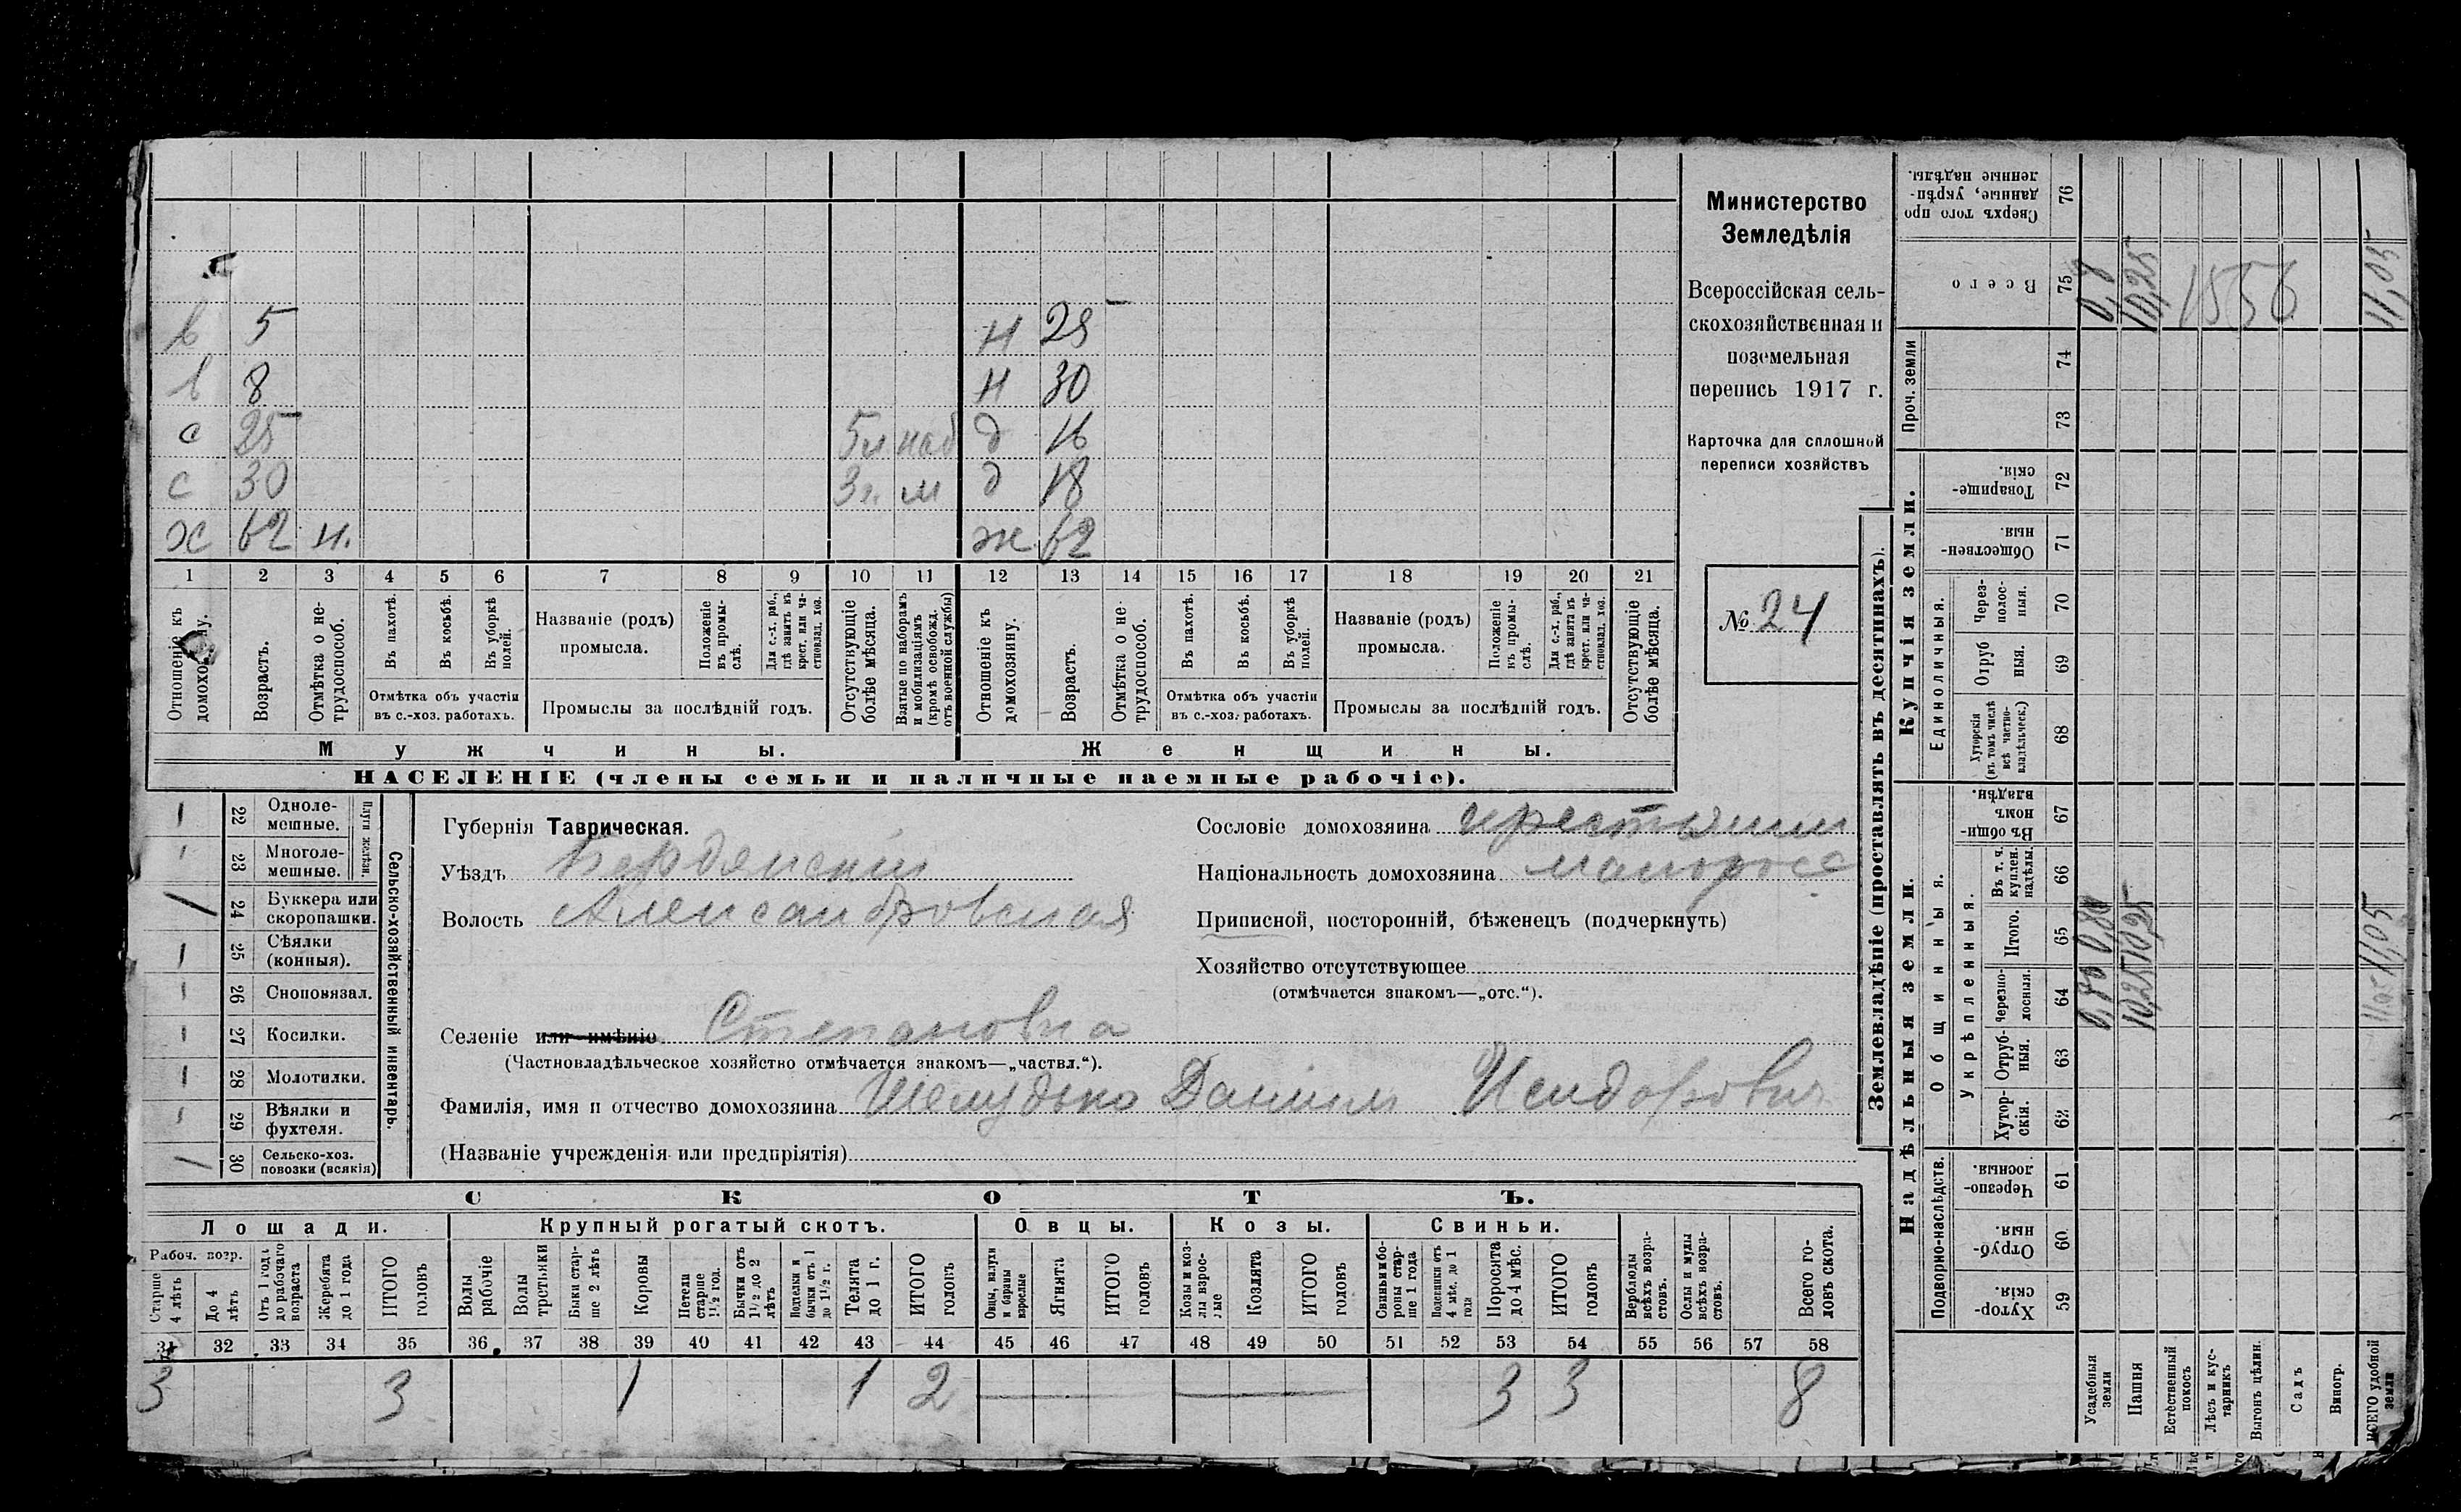 Министерство
Земледѣлія
Всероссійская сель-
скохозяйственная и
поземельная
перепись 1917 г.
Карточка для сплошной
переписи хозяйствъ
№ 24
в 5 н 25
в 8 н 30
с 25 5л наб д 16
с 30 3г. м д 18
х 62 н. ж. 62
1 2 3 4 5 6 7 8 9 10 11 12 13 14 15 16 17 18 19 20 21
Отношеніе къ домохозяину.
Возрастъ.
Отмѣтка о не-
трудоспособ.
Въ пахотѣ.
Въ косьбѣ.
Въ уборкѣ
полей.
Отмѣтка объ участіи
въ с.-хоз. работахъ.
Названіе (родъ)
промысла.
Положеніе
въ промы-
слѣ.
Для с.-х. раб.,
гдѣ занятъ въ
крест. или ча-
стновлад. хоз.
Промыслы за послѣдній годъ.
Отсутствующіе
болѣе мѣсяца.
Взятые по наборамъ
и мобилизаціямъ
(кромѣ освобожд.
отъ военной службы)
Отношеніе къ
домохозяину.
Возрастъ.
Отмѣтка о не-
трудоспособ.
Въ пахотѣ.
Въ косьбѣ.
Въ уборкѣ
полей.
Отмѣтка объ участіи
въ с.-хоз. работахъ.
Названіе (родъ)
промысла.
Положеніе
къ промы-
слѣ.
Для с.-х. раб.,
гдѣ занята въ
крест. или ча-
стновлад. хоз.
Промыслы за послѣдній годъ.
Отсутствующіе
болѣе мѣсяца.
Мужчины.
Женщины.
НАСЕЛЕНІЕ (члены семьи и наличные наемные рабочіе).
Сельско-хозяйственный инвентарь.
Плуги желѣзн.
1 22 Одноле-
мешные.
23 Многоле-
мешные.
1 24 Буккера или
скоропашки.
1 25 Сѣялки
(конныя).
26 Сноповязал.
27 Косилки.
28 Молотилки.
29 Вѣялки и
фухтеля.
1 30 Сельско-хоз.
повозки (всякія)
Губернія Таврическая.
Уѣздъ Бердянскій
Волость Александровская
Сословіе домохозяина крестьянин
Національность домохозяина малоросс
Приписной, посторонній, бѣженецъ (подчеркнуть)
Хозяйство отсутствующее
(отмѣчается знакомъ—„отс.“).
Селеніе или имѣніе Степановка
(Частновладѣльческое хозяйство отмѣчается знакомъ—„частвл.“).
Фамилія, имя и отчество домохозяина Шелудько Даніил Исидорович
(Названіе учрежденія или предпріятія)
СКОТЪ.
Лошади. Крупный рогатый скотъ. Овцы. Козы. Свиньи.
Рабоч. возр.
Старше
4 лѣтъ
До 4
лѣтъ
Отъ 1 года
до рабочаго
возраста
Жеребята
до 1 года
ИТОГО
головъ
Волы
рабочіе
Волы
третьяки
Быки стар-
ше 2 лѣтъ
Коровы
Нетели
старше
1½ год.
Бычки отъ
1½ до 2
лѣтъ
Подтелки и
бычки отъ 1
до 1½ г.
Телята
до 1 г.
ИТОГО
головъ
Овцы, валухи
и бараны
взрослые
Ягнята
ИТОГО
головъ
Козы и коз-
лы взрос-
лые
Козлята
ИТОГО
головъ
Свиньи и бо-
ровы стар-
ше 1 года
Подсвинки отъ
4 мѣс. до 1
года
Поросята
до 4 мѣс.
ИТОГО
головъ
Верблюды
всѣхъ возра-
стовъ.
Ослы и мулы
всѣхъ возра-
стовъ.
Всего го-
ловъ скота.
31 32 33 34 35 36 37 38 39 40 41 42 43 44 45 46 47 48 49 50 51 52 53 54 55 56 57 58
3 3 1 1 2 3 3 8
Землевладѣніе (проставлять въ десятинахъ).
Надѣльныя земли.
Купчія земли.
Проч. земли
Подворно-наслѣдств.
Общинныя.
Укрѣпленныя.
Единоличныя.
Хутор-
скія.
59
Отруб-
ныя.
60
Черезпо-
лосныя.
61
Хутор-
скія.
62
Отруб-
ныя.
63
Черезпо-
лосныя.
64
Итого.
65
Въ т. ч.
куплен.
надѣлы.
66
Въ общин-
номъ
владѣн.
67
Хуторскія
(въ томъ числѣ
всѣ частно-
владѣльческ.)
68
Отруб
ныя.
69
Через-
полос-
ныя.
70
Обществен-
ныя
71
Товарище-
скія.
72
73
74
Всего
75
Сверхъ того про
данные, укрѣп-
ленные надѣлы.
76
Усадебныя
земли
0,80 0,80 0,8
Пашня
10,25 10,25 10,25
Естественный
покосъ
Лѣсъ и кус-
тарникъ
Выгонъ цѣлин.
Садъ
Виногр.
ВСЕГО удобной
земли
11,05 11,05 11,05
1556